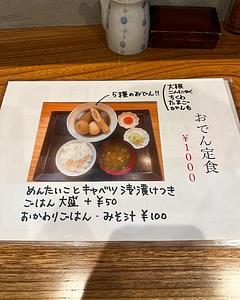 5種のおでん!!
大根
こんにゃく
ちくわ
たまご
がんも
おでん定食
¥1000
めんたいことキャベツ浅漬けつき
ごはん大盛 + ¥50
おかわりごはん・みそ汁 ¥100